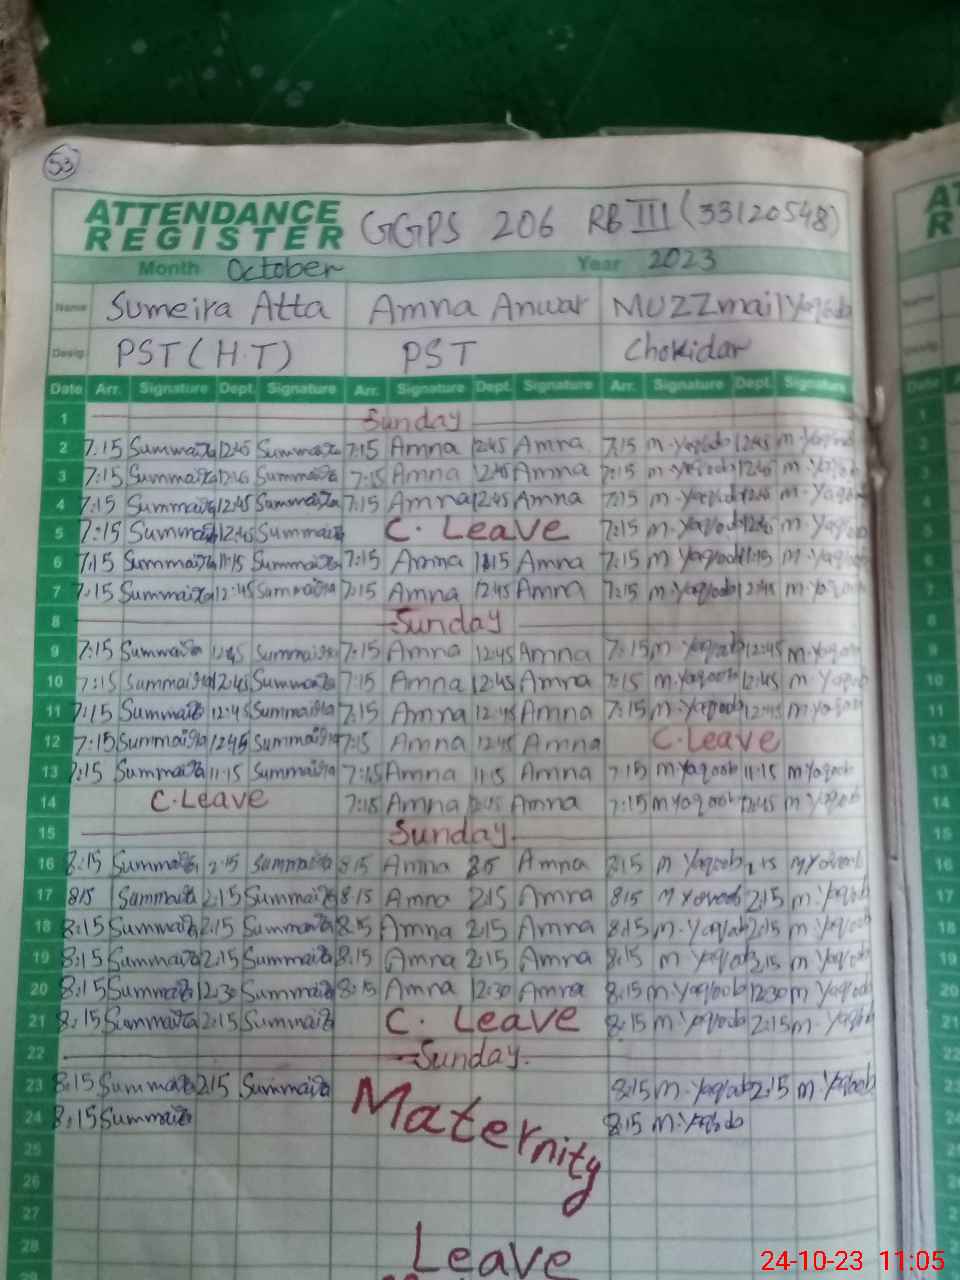 53
ATTENDANCE REGISTER GGPS 206 RB III (33120548)
Month October Year 2023
Name Sumeira Atta Amna Anwar MUZZmail Yaqoob
Desig. PST (H.T) PST Chokidar
Date Arr. Signature Dept. Signature Arr. Signature Dept. Signature Arr. Signature Dept. Signature
1 Sunday
2 7:15 Summaira 12:45 Summaira 7:15 Amna 12:45 Amna 7:15 m.Yaqoob 12:45 m.Yaqoob
3 7:15 Summaira Summaira 7:15 Amna 12:45 Amna 7:15 m.Yaqoob 12:45 m.Yaqoob
4 7:15 Summaira 12:45 Summaira 7:15 Amna 12:45 Amna 7:15 m.Yaqoob 12:45 m.Yaqoob
5 7:15 Summaira 12:45 Summaira C. Leave 7:15 m.Yaqoob 12:45 m.Yaqoob
6 7:15 Summaira 11:15 Summaira 7:15 Amna 11:15 Amna 7:15 m Yaqoob 11:15 m.Yaqoob
7 7:15 Summaira 12:45 Summaira 7:15 Amna 12:45 Amna 7:15 m.Yaqoob 12:45 m.Yaqoob
8 Sunday
9 7:15 Summaira 12:45 Summaira 7:15 Amna 12:45 Amna 7:15 m.Yaqoob 12:45 m.Yaqoob
10 7:15 Summaira 12:45 Summaira 7:15 Amna 12:45 Amna 7:15 m.Yaqoob 12:45 m.Yaqoob
11 7:15 Summaira 12:45 Summaira 7:15 Amna 12:45 Amna 7:15 m.Yaqoob 12:45 m.Yaqoob
12 7:15 Summaira 12:45 Summaira 7:15 Amna 12:45 Amna C.Leave
13 7:15 Summaira 11:15 Summaira 7:15 Amna 11:15 Amna 7:15 m Yaqoob 11:15 m Yaqoob
14 C.Leave 7:15 Amna 12:45 Amna 7:15 m Yaqoob 12:45 m.Yaqoob
15 Sunday
16 8:15 Summaira 2:15 Summaira 8:15 Amna Amna 8:15 m Yaqoob 2:15 m Yaqoob
17 8:15 Summaira 2:15 Summaira 8:15 Amna 2:15 Amna 8:15 M Yaqoob 2:15 m.Yaqoob
18 8:15 Summaira 2:15 Summaira 8:15 Amna 2:15 Amna 8:15 m.Yaqoob 2:15 m.Yaqoob
19 8:15 Summaira 2:15 Summaira 8:15 Amna 2:15 Amna 8:15 m Yaqoob 2:15 m Yaqoob
20 8:15 Summaira 12:30 Summaira 8:15 Amna 12:30 Amna 8:15 m.Yaqoob 12:30 m Yaqoob
21 8:15 Summaira 2:15 Summaira C. Leave 8:15 m Yaqoob 2:15 m.Yaqoob
22 Sunday.
23 8:15 Summaira 2:15 Summaira Maternity 8:15 m.Yaqoob 2:15 m.Yaqoob
24 8:15 Summaira 8:15 m.Yaqoob
25
26
27
28 Leave
24-10-23 11:05